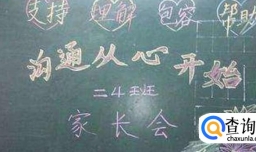 支持 理解 包容 帮助
沟通从心开始
二4班
家长会
查询